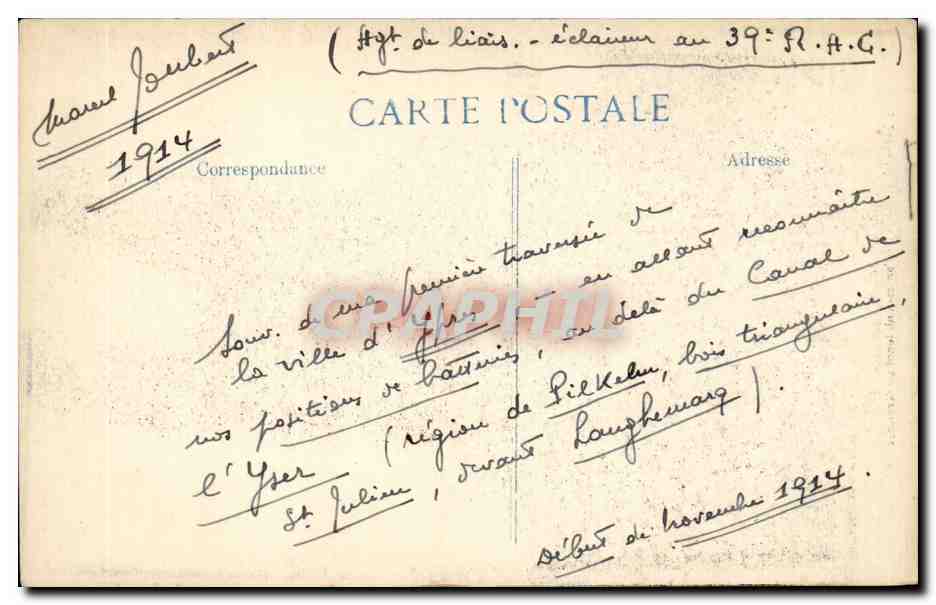 Marcel Joubert
1914
(Agt. de liais. - éclaireur au 39e R.A.C.)
CARTE POSTALE
Correspondance
Adresse
CPAPHIL
Souv. de ma première traversée de
la ville d'Ypres - en allant reconnaître
nos positions de batteries, au delà du Canal de
l'Yser (région de Pilkelm, bois triangulaire,
St Julien, devant Langhemarq).
Début de novembre 1914.